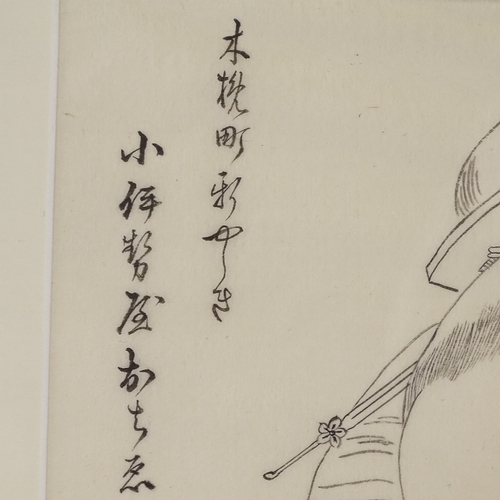 木挽町新やしき
小伊勢屋おちゑ